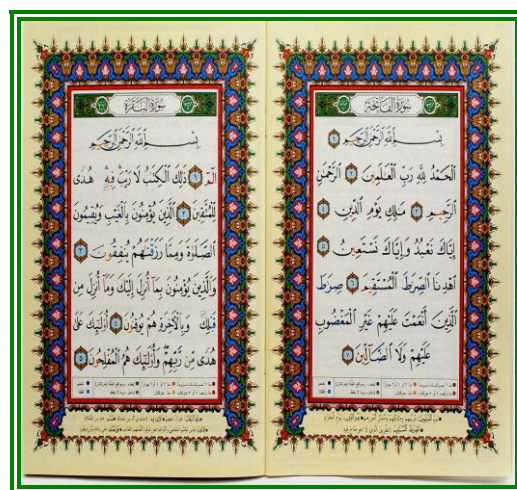 سُورَةُ الْفَاتِحَةِ
بِسْمِ اللَّهِ الرَّحْمَٰنِ الرَّحِيمِ ١
الْحَمْدُ لِلَّهِ رَبِّ الْعَالَمِينَ ٢ الرَّحْمَٰنِ
الرَّحِيمِ ٣ مَالِكِ يَوْمِ الدِّينِ ٤
إِيَّاكَ نَعْبُدُ وَإِيَّاكَ نَسْتَعِينُ ٥
اهْدِنَا الصِّرَاطَ الْمُسْتَقِيمَ ٦ صِرَاطَ
الَّذِينَ أَنْعَمْتَ عَلَيْهِمْ غَيْرِ الْمَغْضُوبِ
عَلَيْهِمْ وَلَا الضَّالِّينَ ٧
سُورَةُ الْبَقَرَةِ
بِسْمِ اللَّهِ الرَّحْمَٰنِ الرَّحِيمِ
الٓمٓ ١ ذَٰلِكَ الْكِتَابُ لَا رَيْبَ فِيهِ هُدًى
لِّلْمُتَّقِينَ ٢ الَّذِينَ يُؤْمِنُونَ بِالْغَيْبِ وَيُقِيمُونَ
الصَّلَاةَ وَمِمَّا رَزَقْنَاهُمْ يُنفِقُونَ ٣
وَالَّذِينَ يُؤْمِنُونَ بِمَا أُنزِلَ إِلَيْكَ وَمَا أُنزِلَ مِن
قَبْلِكَ وَبِالْآخِرَةِ هُمْ يُوقِنُونَ ٤ أُولَٰئِكَ عَلَىٰ
هُدًى مِّن رَّبِّهِمْ وَأُولَٰئِكَ هُمُ الْمُفْلِحُونَ ٥